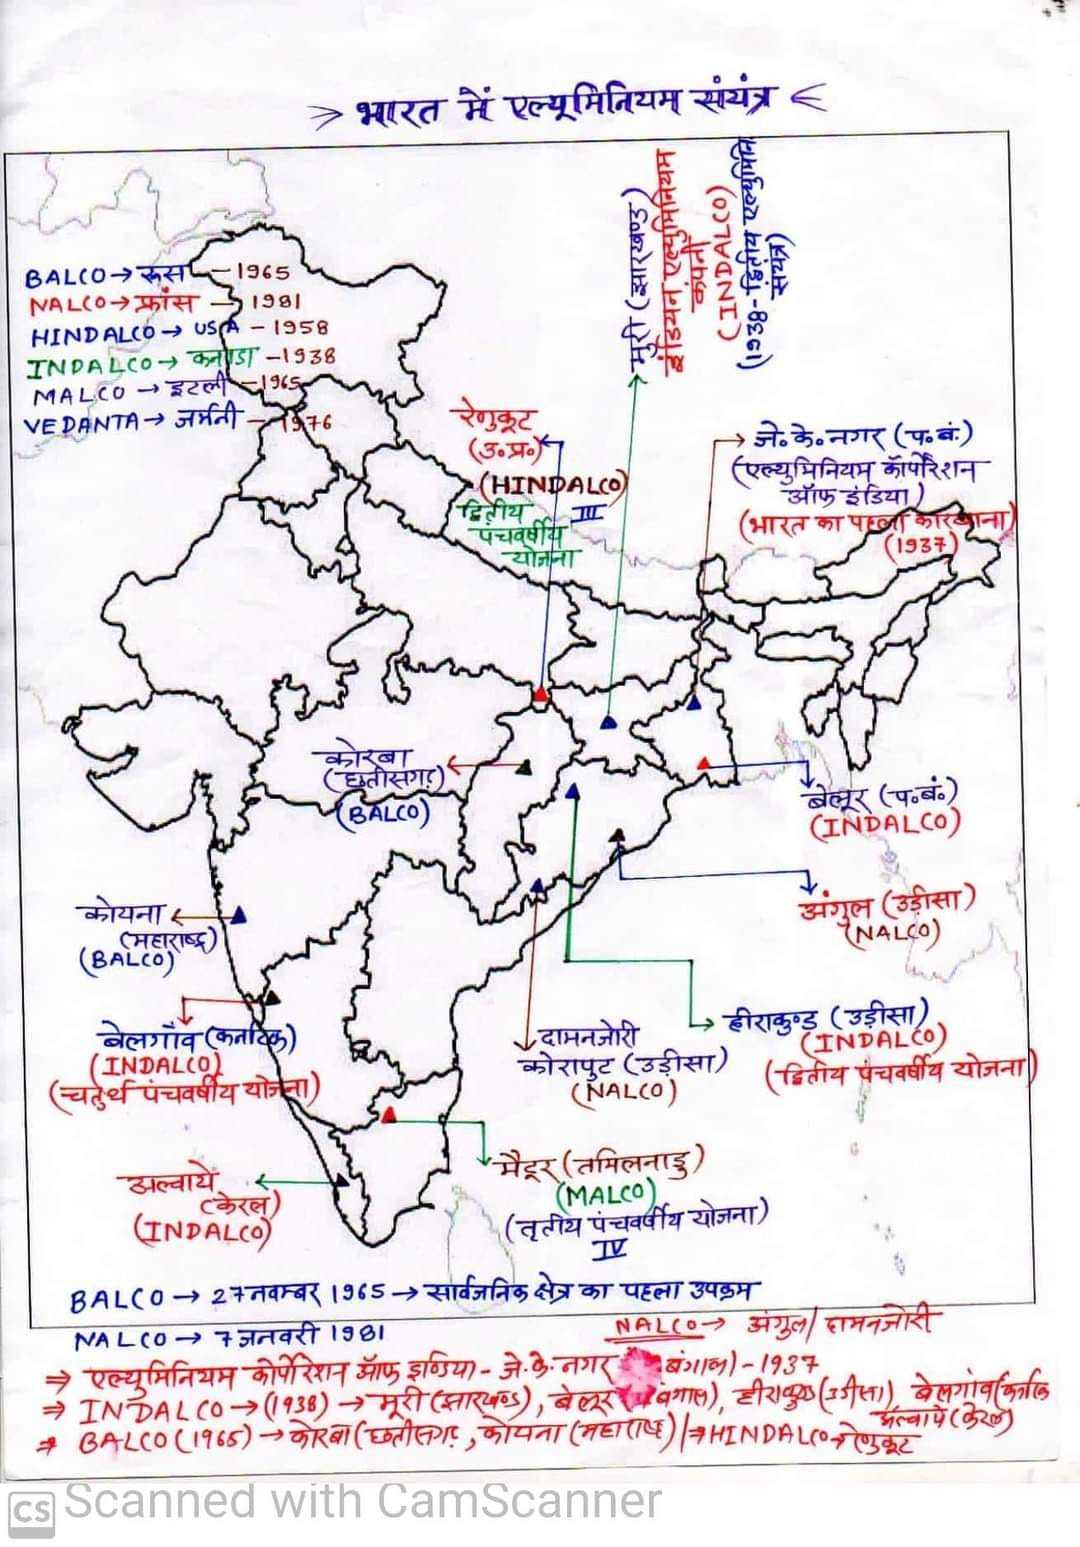 भारत में एल्यूमिनियम संयंत्र
BALCO → रूस – 1965
NALCO → फ्रांस → 1981
HINDALCO → USA – 1958
INDALCO → कनाडा – 1938
MALCO → इटली – 1965
VEDANTA → जर्मनी – 1976
मूरी (झारखण्ड)
इंडियन एल्युमिनियम
कंपनी
(INDALCO)
(1938 - द्वितीय एल्युमिनियम
संयंत्र)
रेणुकूट
(उ०प्र०)
(HINDALCO)
द्वितीय III
पंचवर्षीय
योजना
जे० के० नगर (प०बं०)
(एल्युमिनियम कॉर्पोरेशन
ऑफ इंडिया)
(भारत का पहला कारखाना)
(1937)
कोरबा
(छत्तीसगढ़)
(BALCO)
बेलूर (प०बं०)
(INDALCO)
अंगुल (उड़ीसा)
(NALCO)
कोयना
(महाराष्ट्र)
(BALCO)
बेलगाँव (कर्नाटक)
(INDALCO)
(चतुर्थ पंचवर्षीय योजना)
दामनजोरी
कोरापुट (उड़ीसा)
(NALCO)
हीराकुण्ड (उड़ीसा)
(INDALCO)
(द्वितीय पंचवर्षीय योजना)
अल्वाये
(केरल)
(INDALCO)
मैटूर (तमिलनाडु)
(MALCO)
(तृतीय पंचवर्षीय योजना)
IV
BALCO → 27 नवम्बर 1965 → सार्वजनिक क्षेत्र का पहला उपक्रम
NALCO → 7 जनवरी 1981
NALCO → अंगुल / दामनजोरी
⇒ एल्युमिनियम कोर्पोरेशन ऑफ इण्डिया - जे.के. नगर बंगाल) - 1937
⇒ INDALCO → (1938) → मूरी (झारखण्ड), बेलूर बंगाल), हीराकुण्ड (उड़ीसा), बेलगांव (कर्नाटक
अल्वाये (केरल)
⇒ BALCO (1965) → कोरबा (छत्तीसगढ़, कोयना (महाराष्ट्र) / ⇒ HINDALCO → रेणुकूट
CS Scanned with CamScanner